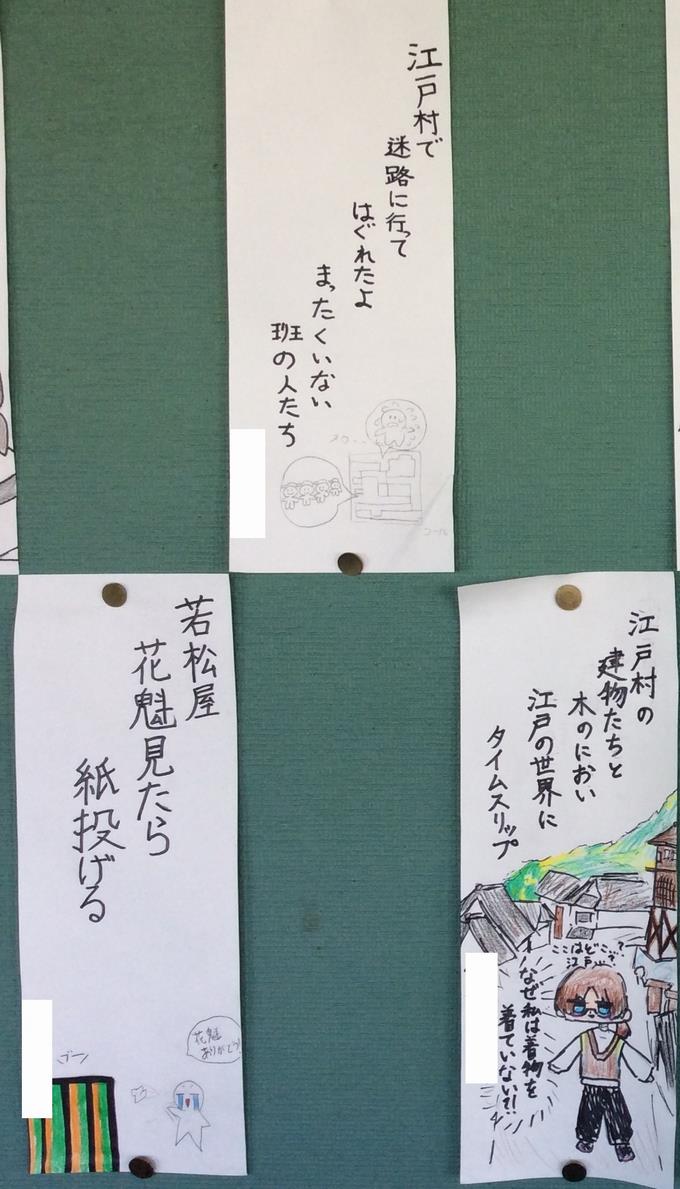 江戸村で
迷路に行って
はぐれたよ
まったくいない
班の人たち
コール
若松屋
花魁見たら
紙投げる
花魁
ありがとう!
江戸村の
建物たちと
木のにおい
江戸の世界に
タイムスリップ
ここはどこ…?
江戸…?
なぜ私は着物を
着ていない?!